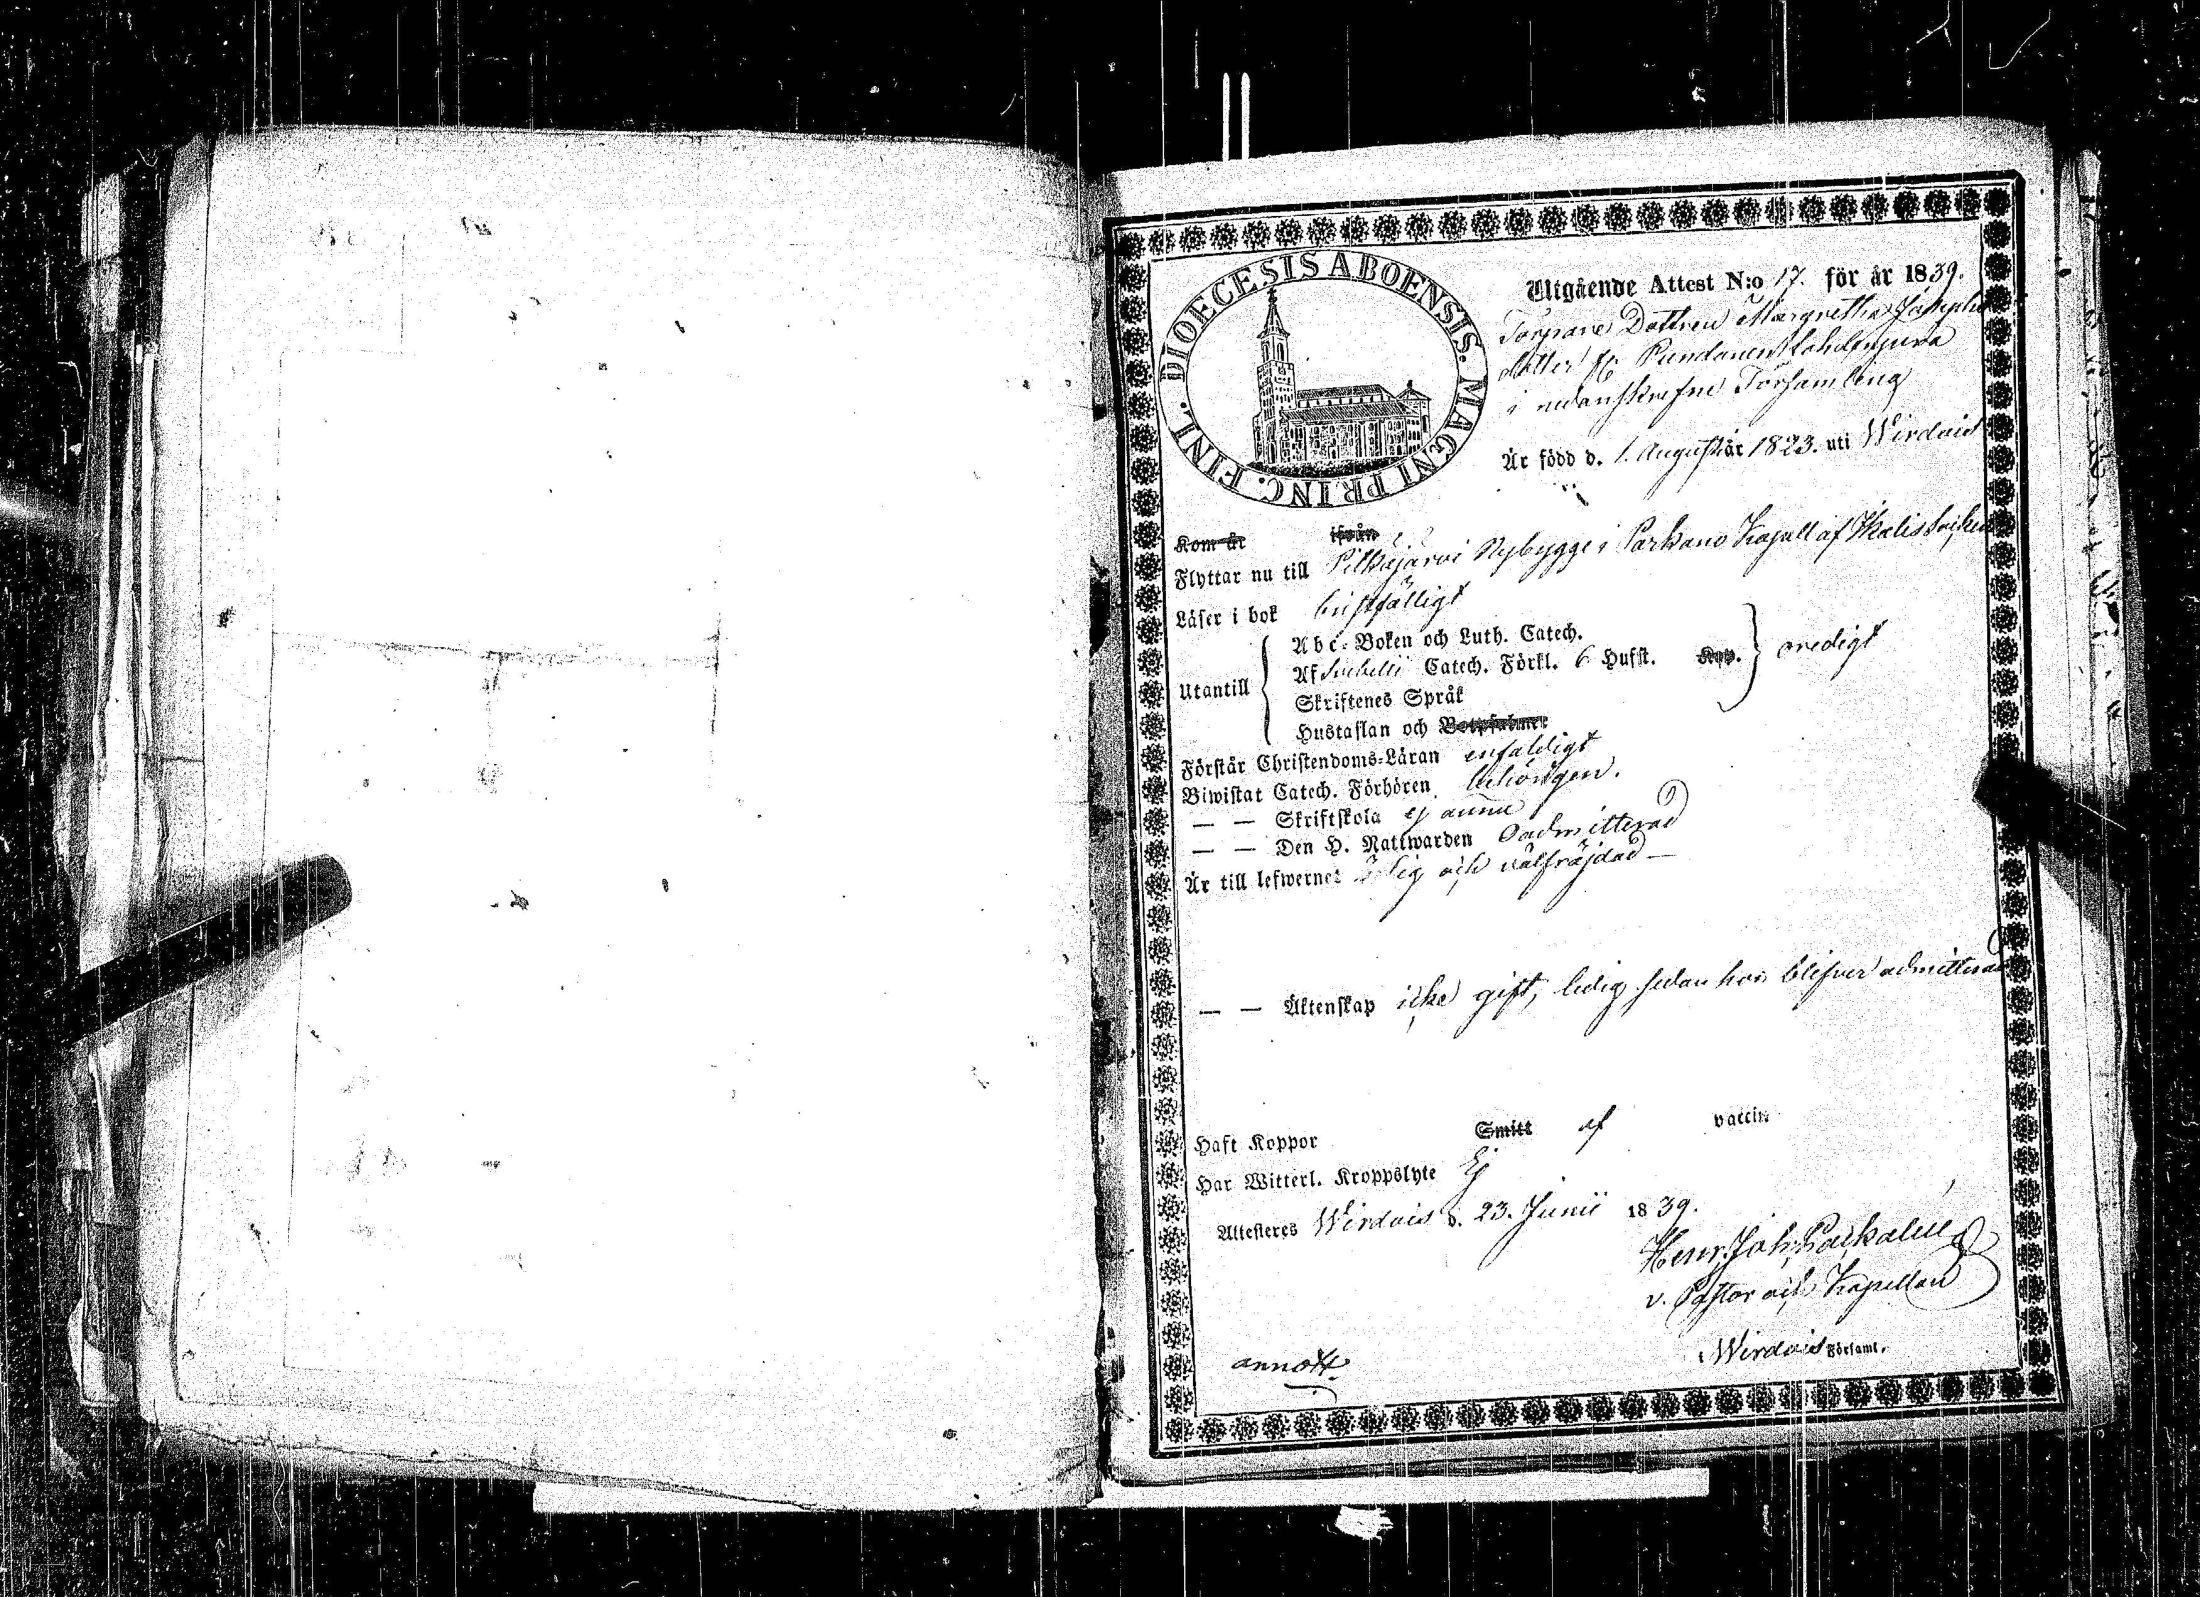 DIOECESIS ABOENSIS. MAGNI PRINC. FINL.
Utgående Attest N:o 17. för år 1839.
Torpare Dottren Margretha Josephs
dotter fr.
i nedanskrefne Församling
Är född d. 1. Augusti år 1823. uti Wirdois
Kom år ifrån
Flyttar nu till Pitkäjärvi Nybygge i Parkano Kapell af Ikalis Sokn
Läser i bok bristfälligt
Utantill
Abc-Boken och Luth. Catech.
Af Svebelii Catech. Förkl. 6 Hufst. Kap. oredigt
Skriftenes Språk
Hustaflan och Botpsalmer
Förstår Christendoms-Läran enfaldigt
Biwistat Catech. Förhören behörigen.
— — Skriftskola ej ännu
— — Den H. Nattwarden Oadmitterad
Är till lefwernet ärlig och välfräjdad —
— — Äktenskap icke gift, ledig sedan hon blifver admitterad
Haft Koppor Smitt af vaccin
Har Witterl. Kroppslyte Ej
Attesteres Wirdois d. 23. Junii 1839.
Henr. Joh.
v. Pastor och Kapellan
i Wirdois Församl.
annott.